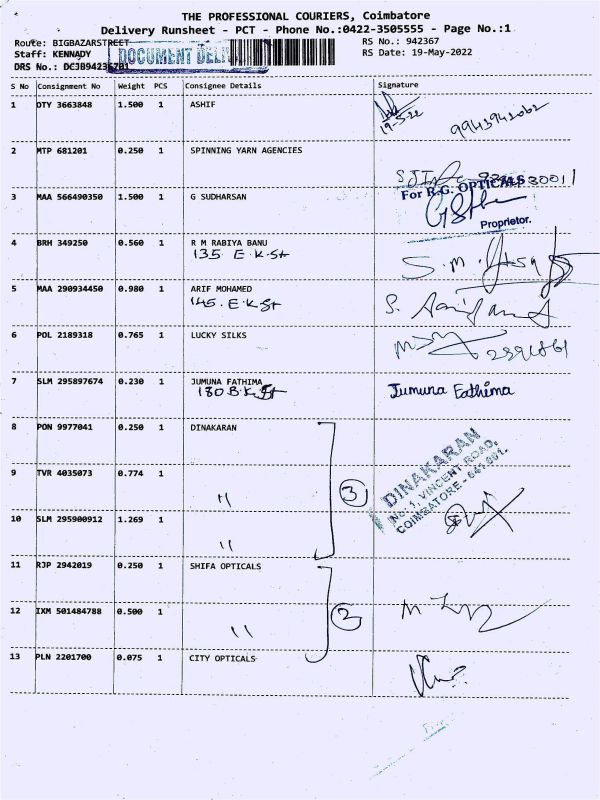 THE PROFESSIONAL COURIERS, Coimbatore
Delivery Runsheet - PCT - Phone No.:0422-3505555 - Page No.:1
Route: BIGBAZARSTREET
RS No.: 942367
Staff: KENNADY
DOCUMENT
RS Date: 19-May-2022
DRS No.: DCJB94236701
S No Consignment No Weight PCS Consignee Details Signature
1 OTY 3663848 1.500 1 ASHIF
19-5-22
2 MTP 681201 0.250 1 SPINNING YARN AGENCIES
For R.G. OPTICALS
3 MAA 566490350 1.500 1 G SUDHARSAN
Proprietor.
4 BRH 349250 0.560 1 R M RABIYA BANU
135 E.K.St
5 MAA 290934450 0.980 1 ARIF MOHAMED
145. E.K St
6 POL 2189318 0.765 1 LUCKY SILKS
7 SLM 295897674 0.230 1 JUMUNA FATHIMA Jumuna Fathima
180 B.K.St
8 PON 9977041 0.250 1 DINAKARAN
DINAKARAN
No: 1, VINCENT ROAD,
COIMBATORE - 641 001.
9 TVR 4035073 0.774 1
"
3
10 SLM 295900912 1.269 1
"
11 RJP 2942019 0.250 1 SHIFA OPTICALS
12 IXM 501484788 0.500 1
"
2
13 PLN 2201700 0.075 1 CITY OPTICALS